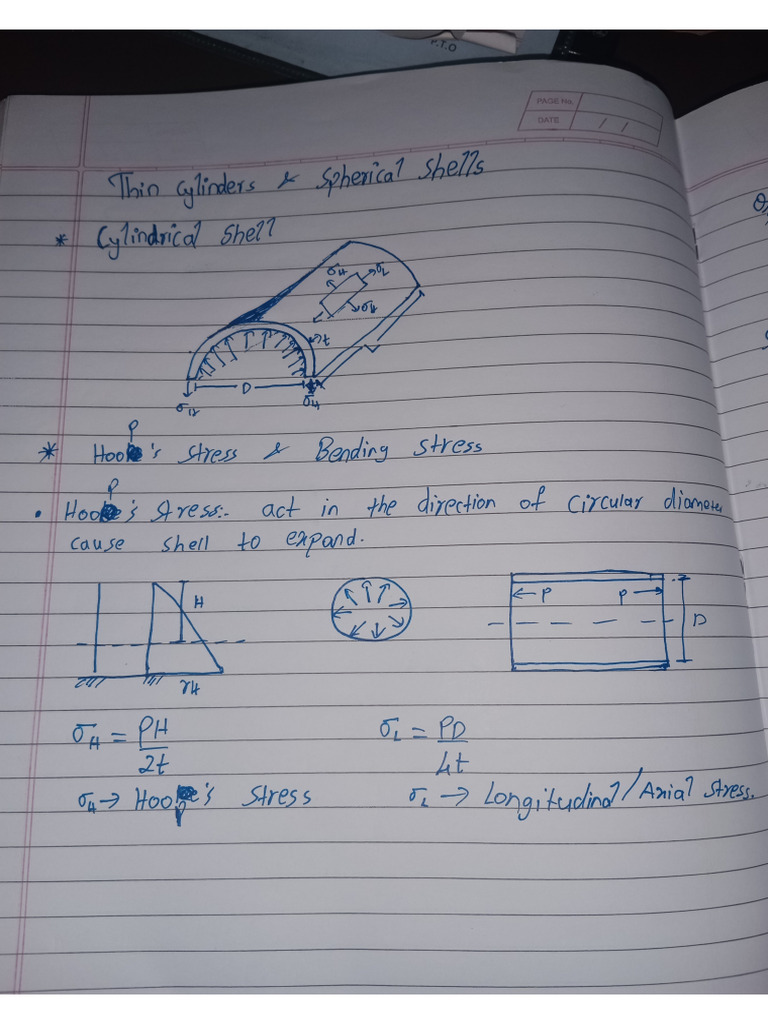 P.T.O
PAGE No.
DATE / /
Thin Cylinders & Spherical Shells
* Cylindrical Shell
σH σL
σH
t
D
σH
P
* Hoo's Stress & Bending Stress
P
• Hoo's Stress:- act in the direction of circular diameter
cause shell to expand.
H
P P
D
γH
σH = PH/2t σL = PD/4t
σH → Hoo's Stress σL → Longitudinal/Axial Stress.
P